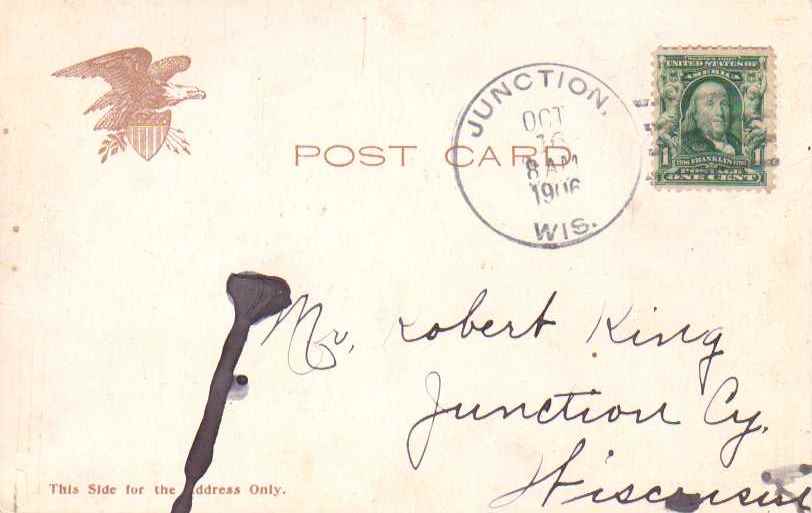 UNITED STATES OF
AMERICA
1 FRANKLIN 1
POSTAGE
ONE CENT
JUNCTION,
OCT
16
8 AM
1906
WIS.
POST CARD
Mr. Robert King
Junction Cy.
Wisconsin
This Side for the Address Only.